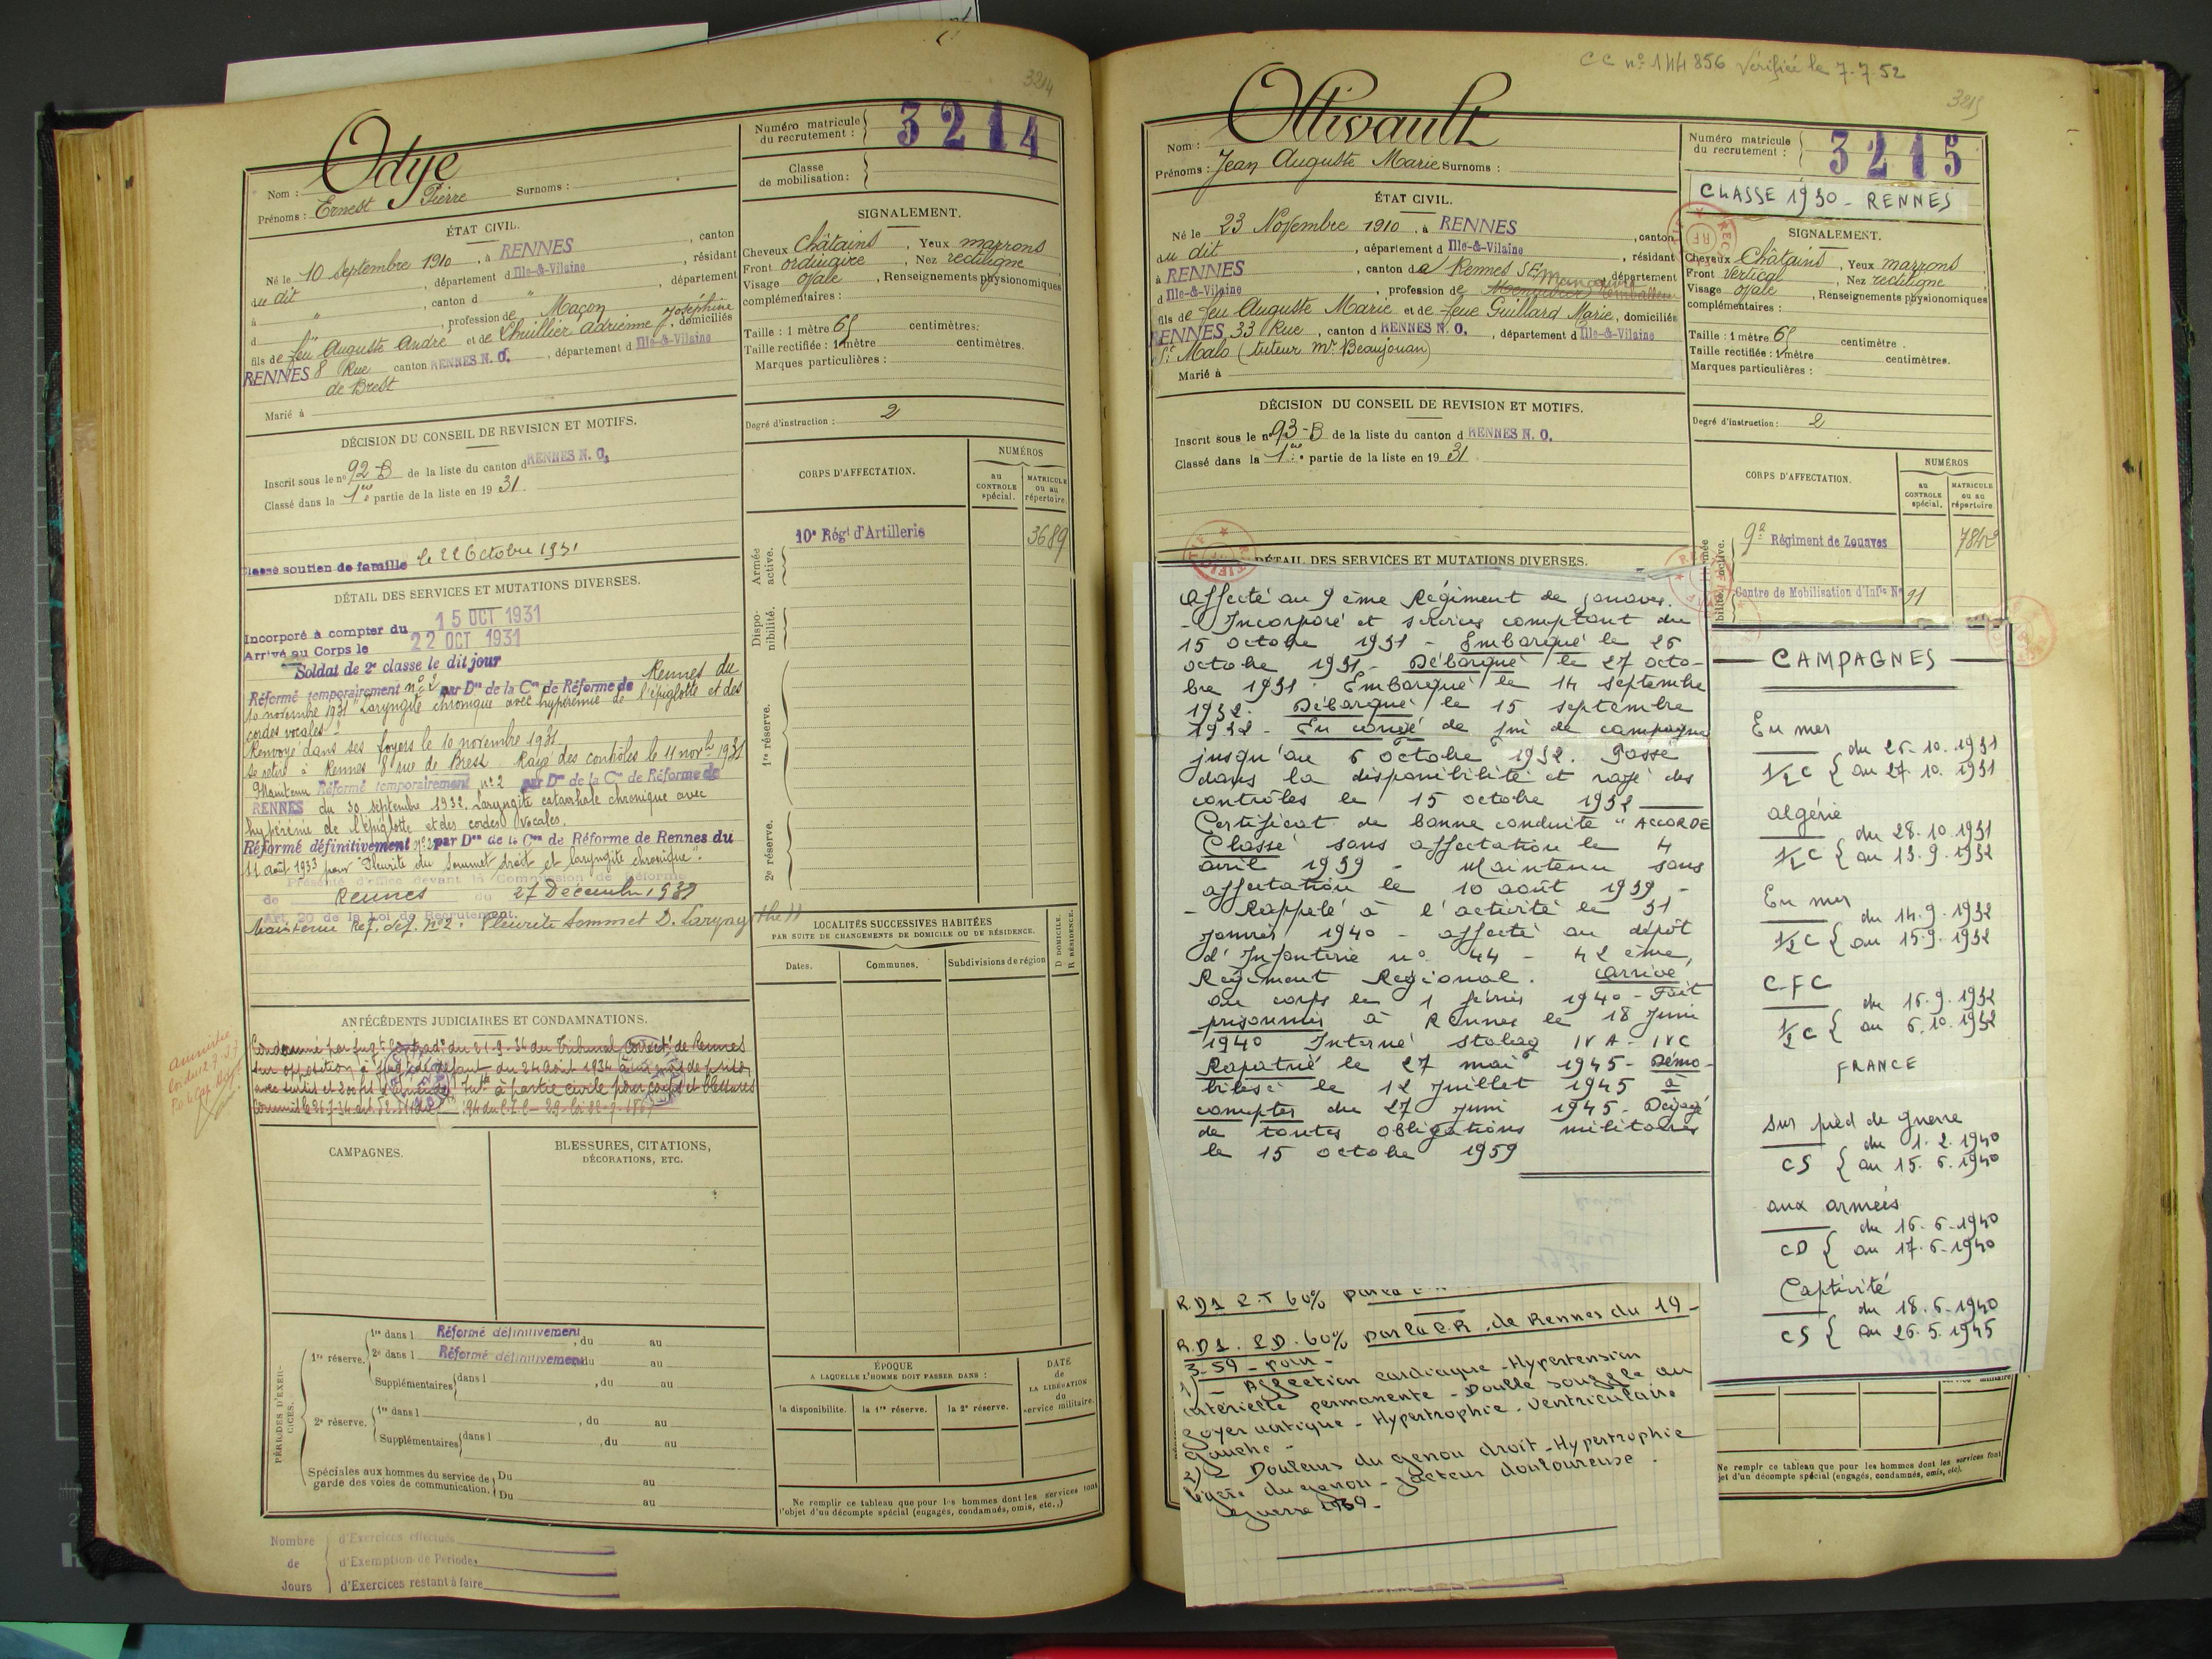 3214
Odye
Nom :
Prénoms : Ernest Pierre Surnoms :
Numéro matricule
du recrutement :
3214
Classe
de mobilisation :
ÉTAT CIVIL.
Né le 10 Septembre 1910, à RENNES, canton
du dit, département d Ille-&-Vilaine, résidant
à ", canton d ", département
d ", profession de Maçon
fils de feu Auguste André et de Lhuillier Adrienne Joséphine, domiciliés
RENNES 8 Rue canton RENNES N. O., département d Ille-&-Vilaine
de Brest
Marié à
SIGNALEMENT.
Cheveux Châtains, Yeux marrons
Front ordinaire, Nez rectiligne
Visage ovale, Renseignements physionomiques
complémentaires :
Taille : 1 mètre 65 centimètres.
Taille rectifiée : 1 mètre centimètres.
Marques particulières :
Degré d'instruction : 2
DÉCISION DU CONSEIL DE REVISION ET MOTIFS.
Inscrit sous le n° 92-B de la liste du canton d RENNES N. O.
Classé dans la 1re partie de la liste en 19 31.
Classé soutien de famille le 22 Octobre 1931
CORPS D'AFFECTATION.
NUMÉROS
au
CONTROLE
spécial.
MATRICULE
ou au
répertoire
Armée
active.
10e Régt d'Artillerie
3689
Dispo-
nibilité.
1re réserve.
2e réserve.
DÉTAIL DES SERVICES ET MUTATIONS DIVERSES.
Incorporé à compter du 15 OCT 1931
Arrivé au Corps le 22 OCT 1931
Soldat de 2e classe le dit jour
Réformé temporairement n° 2 par Don de la Con de Réforme de Rennes du
10 novembre 1931 "Laryngite chronique avec hyperémie de l'épiglotte et des
cordes vocales"
Renvoyé dans ses foyers le 10 novembre 1931.
Se retire à Rennes 8 rue de Brest. Rayé des contrôles le 11 novbre 1931
Maintenu Réformé temporairement n° 2 par Don de la Con de Réforme de
RENNES du 30 septembre 1932. Laryngite catarrhale chronique avec
hypérémie de l'épiglotte et des cordes vocales.
Réformé définitivement n° 2 par Don de la Con de Réforme de Rennes du
11 août 1933 pour "Pleurite du sommet droit et laryngite chronique".
Présenté d'office devant la Commission de Réforme
de Rennes du 27 Décembre 1939
Art. 20 de la Loi de Recrutement.
Maintenu Réf. déf. n° 2. Pleurite Sommet D. Laryngithe
LOCALITÉS SUCCESSIVES HABITÉES
PAR SUITE DE CHANGEMENTS DE DOMICILE OU DE RÉSIDENCE.
Dates.
Communes.
Subdivisions de région
D DOMICILE.
R RÉSIDENCE.
ANTÉCÉDENTS JUDICIAIRES ET CONDAMNATIONS.
Condamné par du 21-9-34 du Tribunal Correct. de Rennes
sur opposition à défaut du 24 août 1934 à
à partie civile pour coups et blessures
Amnistie
Loi du 12-7-37
CAMPAGNES.
BLESSURES, CITATIONS,
DÉCORATIONS, ETC.
PÉRIODES D'EXER-
CICES.
1re réserve.
1re dans l Réformé définitivement, du au
2e dans l Réformé définitivement du au
Supplémentaires dans l, du au
2e réserve.
1re dans l, du au
Supplémentaires dans l, du au
Spéciales aux hommes du service de
garde des voies de communication.
Du au
Du au
ÉPOQUE
A LAQUELLE L'HOMME DOIT PASSER DANS :
la disponibilité.
la 1re réserve.
la 2e réserve.
DATE
de
LA LIBÉRATION
du
service militaire.
Ne remplir ce tableau que pour les hommes dont les services font
l'objet d'un décompte spécial (engagés, condamnés, omis, etc.,)
Nombre
de
Jours
d'Exercices effectués
d'Exemption de Périodes
d'Exercices restant à faire
CC n° 144 856 Vérifiée le 7-7-52
3215
Ollivault
Nom :
Prénoms : Jean Auguste Marie Surnoms :
Numéro matricule
du recrutement :
3215
CLASSE 1930 - RENNES
ÉTAT CIVIL.
Né le 23 Novembre 1910, à RENNES, canton
du dit, département d Ille-&-Vilaine, résidant
à RENNES, canton de Rennes SE, département
d Ille-&-Vilaine, profession de
fils de feu Auguste Marie et de feue Guillard Marie, domiciliés
RENNES, 33 Rue, canton d RENNES N. O., département d Ille-&-Vilaine
St Malo (tuteur Mr Beaujouan)
Marié à
SIGNALEMENT.
Cheveux Châtains, Yeux marrons
Front vertical, Nez rectiligne
Visage ovale, Renseignements physionomiques
complémentaires :
Taille : 1 mètre 65 centimètre.
Taille rectifiée : 1 mètre centimètres.
Marques particulières :
Degré d'instruction : 2
DÉCISION DU CONSEIL DE REVISION ET MOTIFS.
Inscrit sous le n° 93-B de la liste du canton d RENNES N. O.
Classé dans la 1re partie de la liste en 19 31
CORPS D'AFFECTATION.
NUMÉROS
au
CONTROLE
spécial.
MATRICULE
ou au
répertoire
9e Régiment de Zouaves
7842
Centre de Mobilisation d'Infie N° 91
DÉTAIL DES SERVICES ET MUTATIONS DIVERSES.
Affecté au 9 ème Régiment de zouaves.
- Incorporé et services comptant du
15 octobre 1931 - Embarqué le 26
octobre 1931 - Débarqué le 27 octo-
bre 1931. Embarqué le 14 septembre
1932. Débarqué le 15 septembre
1932 - En congé de fin de campagne
jusqu'au 6 octobre 1932. Passé
dans la disponibilité et rayé des
contrôles le 15 octobre 1932
Certificat de bonne conduite "ACCORDE
Classé sans affectation le 4
avril 1939 - Maintenu sans
affectation le 10 août 1939 -
- Rappelé à l'activité le 31
janvier 1940 - affecté au dépôt
d'Infanterie n° 44 - 42 ème,
Régiment Regional. arrivé
au corps le 1 février 1940 - Fait
prisonnier à Rennes le 18 Juin
1940 Interné stalag IV A - IV C
Rapatrié le 27 mai 1945 - Démo-
bilisé le 12 Juillet 1945 à
compter du 27 juin 1945 - Dégagé
de toutes obligations militaires
le 15 octobre 1959
CAMPAGNES
En mer
1/2 C { du 26.10.1931
au 27.10.1931
algérie
1/2 C { du 28.10.1931
au 13.9.1932
En mer
1/2 C { du 14.9.1932
au 15.9.1932
C F C
1/2 C { du 16.9.1932
au 6.10.1932
FRANCE
sur pied de guerre
CS { du 1.2.1940
au 15.6.1940
aux armées
CD { du 16.6.1940
au 17.6.1940
Captivité
CS { du 18.6.1940
au 26.5.1945
R.D1 2.T 60%
R.D1. P.D. 60% par la C.R. de Rennes du 19-
3-59 - pour -
1) - Affection cardiaque - Hypertension
artérielle permanente - Double souffle au
foyer aortique - Hypertrophie ventriculaire
gauche -
2) - Douleurs du genou droit - Hypertrophie
légère du genou - facteur douloureuse.
Guerre 1939 -
Ne remplir ce tableau que pour les hommes dont les services font
jet d'un décompte spécial (engagés, condamnés, omis, etc).